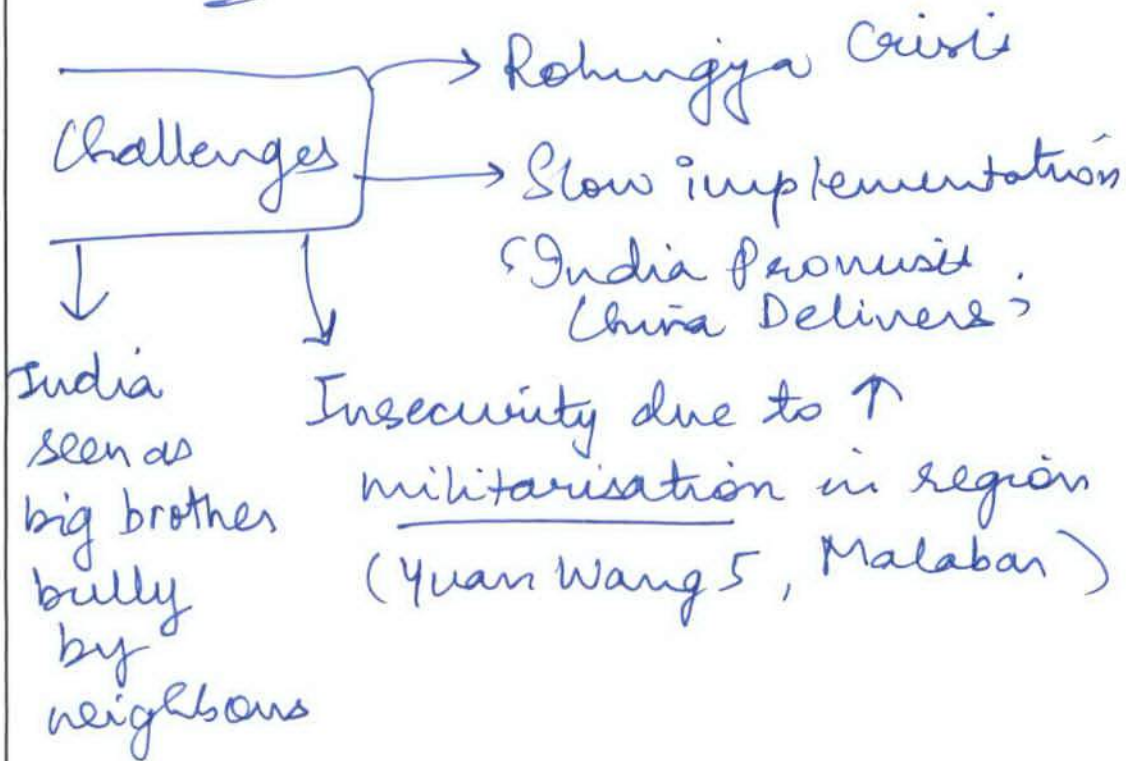 Challenges
Rohingya Crisis
Slow implementation
'India Promises,
China Delivers'
India
seen as
big brother
bully
by
neighbours
Insecurity due to ↑
militarisation in region
(Yuan Wang 5, Malabar)